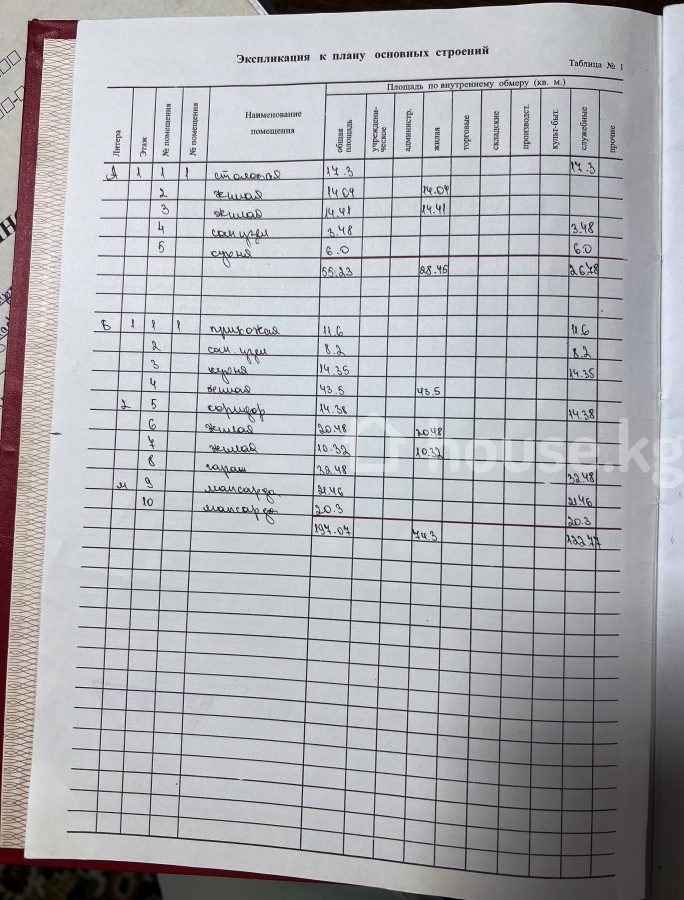 Экспликация к плану основных строений
Таблица № 1
Площадь по внутреннему обмеру (кв. м.)
Литера Этаж № помещения № помещения Наименование помещения общая площадь учрежденическое администр. жилая торговые складские производст. культ-быт. служебные прочие
А 1 1 1 столовая 17.3 17.3
2 жилая 14.04 14.04
3 жилая 14.41 14.41
4 сан узел 3.48 3.48
5 кухня 6.0 6.0
55.23 28.45 26.78
Б 1 1 1 прихожая 11.6 11.6
2 сан. узел 8.2 8.2
3 кухня 14.35 14.35
4 жилая 43.5 43.5
2 5 коридор 14.38 14.38
6 жилая 20.48 20.48
7 жилая 10.32 10.32
8 гараж 32.48 32.48
м 9 мансарда 21.46 21.46
10 мансарда 20.3 20.3
197.07 74.3 122.77
house.kg